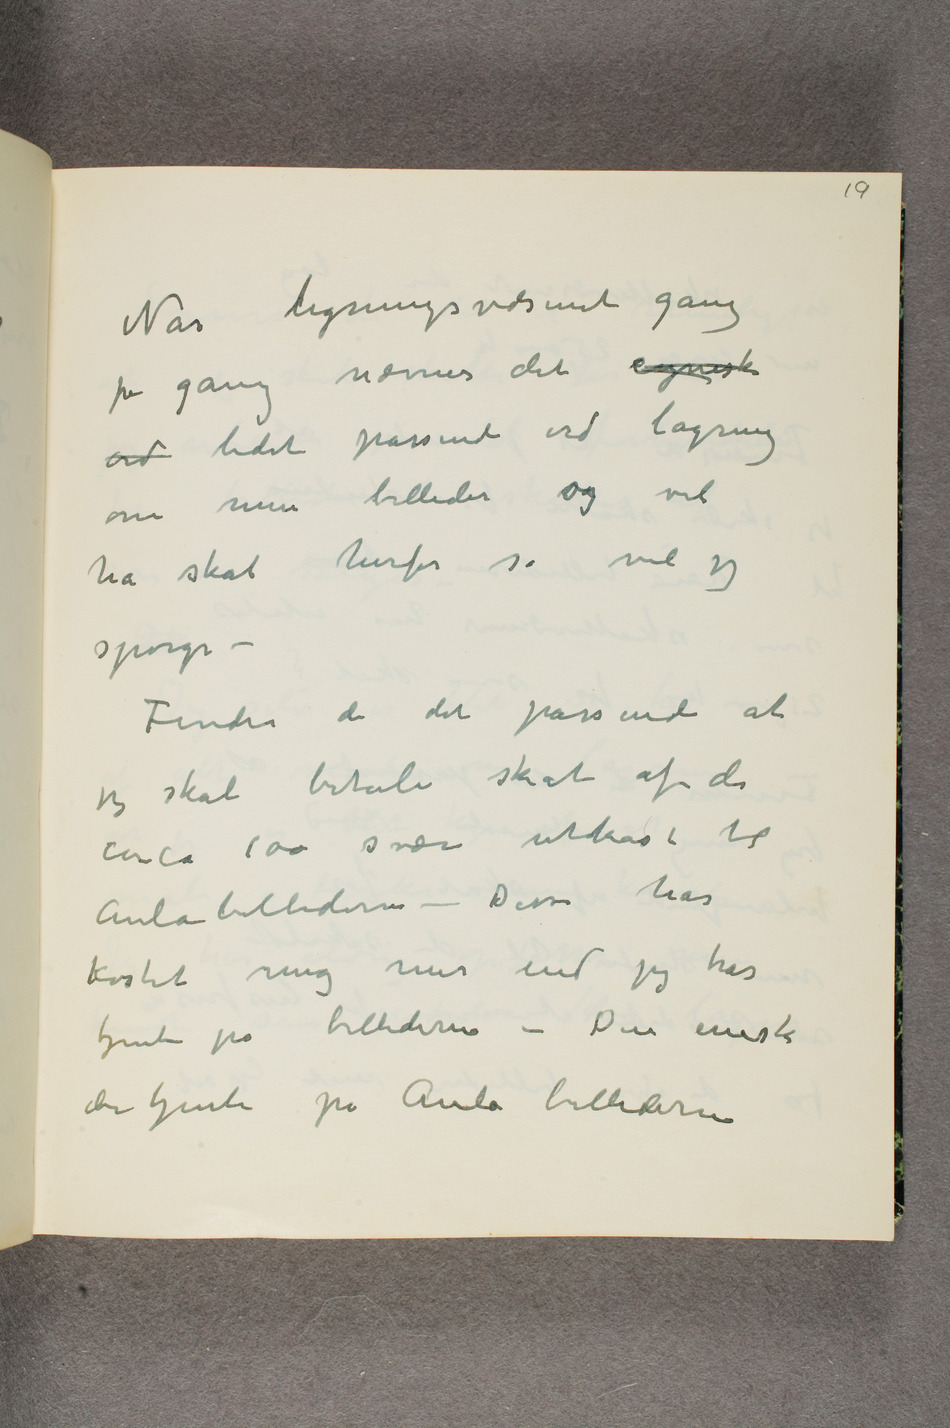 19
Når ligningsvæsenet gang
på gang nævner det egnesk
ord lidet passende ord lagring
om mine billeder og vil
ha skat herfor så vil jeg
spørge –
Finder de det passende at
jeg skal betale skat af de
circa 100 svære utkast til
Aulabillederne – Disse har
kostet mig mer end jeg har
tjent på billederne – Den eneste
der tjente på Aula billederne